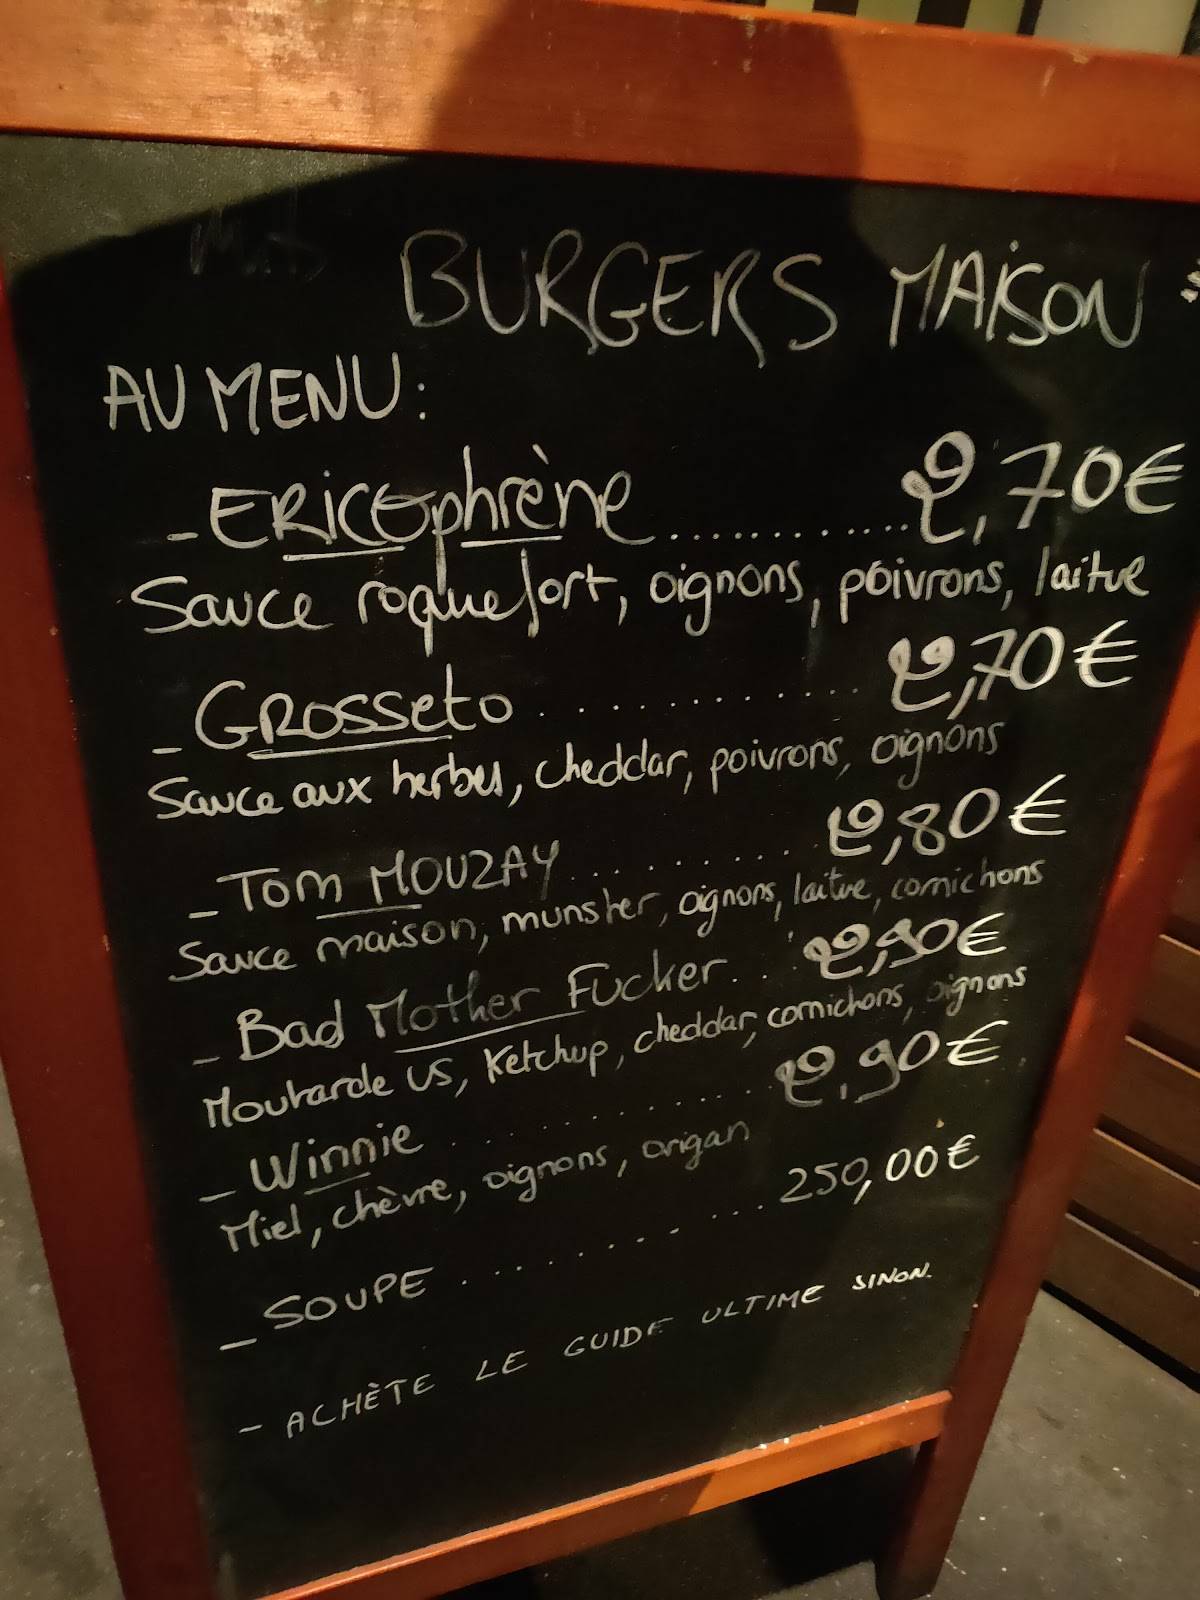 BURGERS MAISON
AU MENU :
- ERICOphrène ............ 2,70€
Sauce roquefort, oignons, poivrons, laitue
- GROSSETO ............. 2,70€
Sauce aux herbes, cheddar, poivrons, oignons
- TOM MOUZAY .......... 2,80€
Sauce maison, munster, oignons, laitue, cornichons
- Bad Mother Fucker... 2,90€
Moutarde US, Ketchup, cheddar, cornichons, oignons
- Winnie ............ 2,90€
Miel, chèvre, oignons, origan
- SOUPE ............ 250,00€
- ACHÈTE LE GUIDE ULTIME SINON.